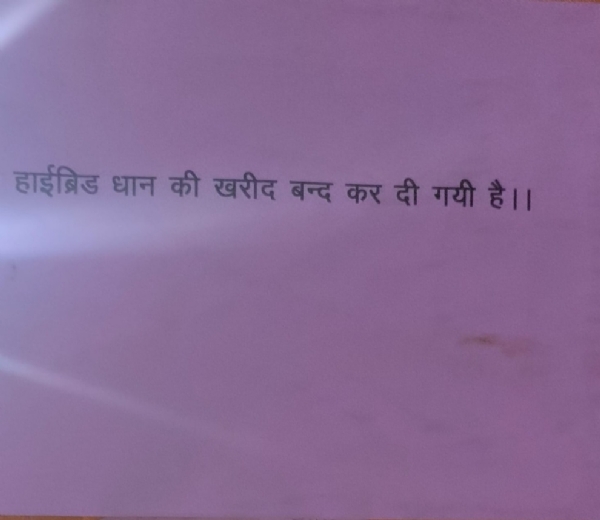 हाईब्रिड धान की खरीद बन्द कर दी गयी है।।